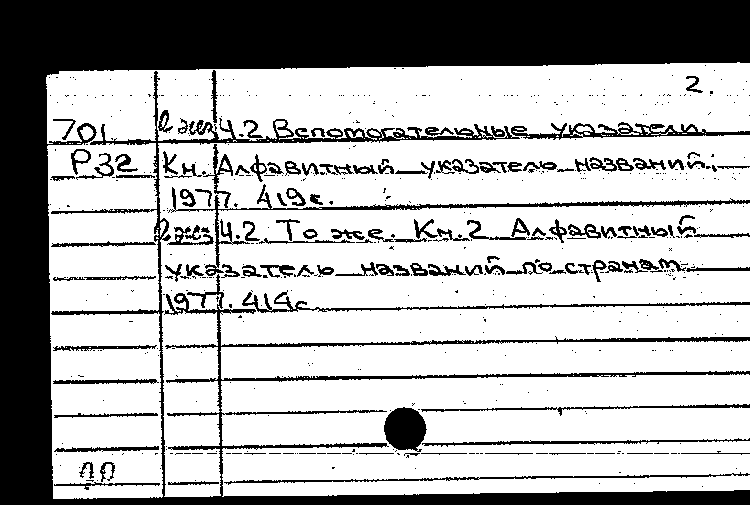 2.
701 2 экз Ч.2. Вспомогательные указатели.
Р32 Кн. Алфавитный указатель названий;
1977. 419с.
2 экз Ч.2. То же. Кн.2 Алфавитный
указатель названий по странам
1977. 414с